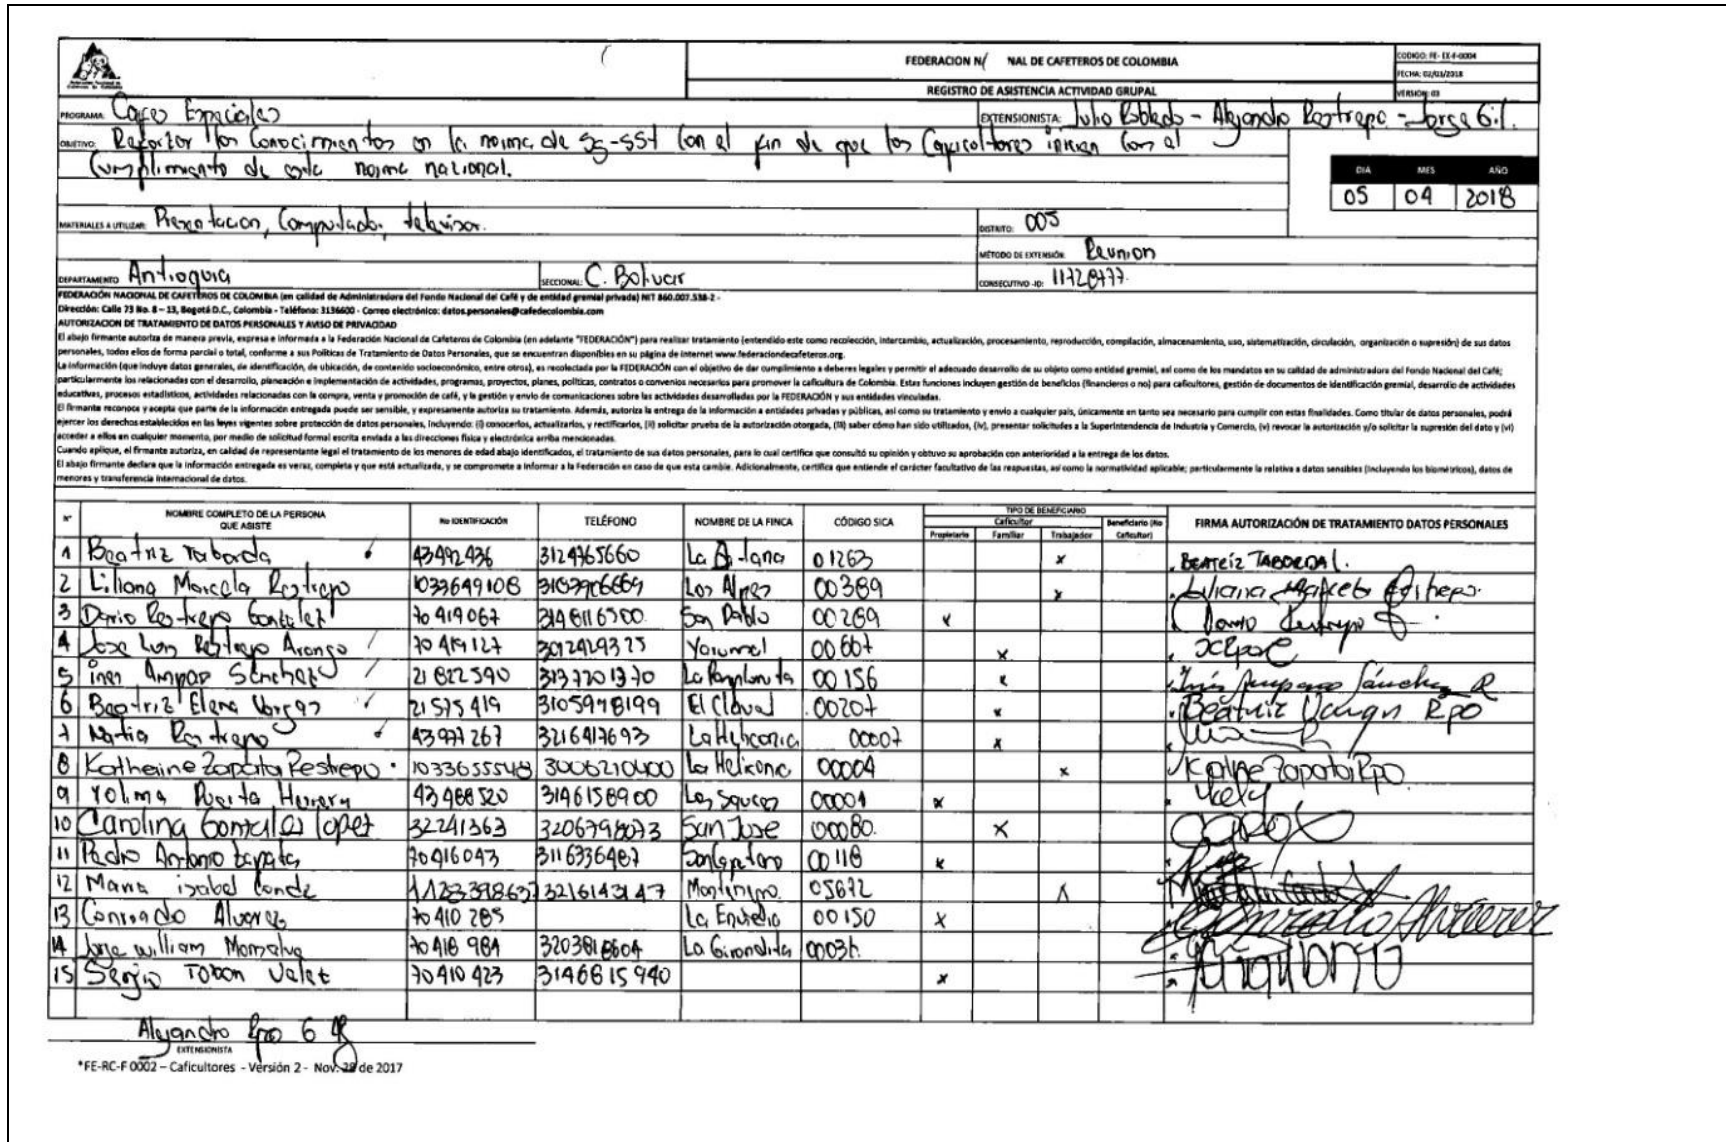 FEDERACION N/ NAL DE CAFETEROS DE COLOMBIA
CODIGO: FE- EX-F-0004
FECHA: 02/03/2018
REGISTRO DE ASISTENCIA ACTIVIDAD GRUPAL
VERSION: 03
PROGRAMA: Cafes Especiales
EXTENSIONISTA: Julio Robledo - Alejandro Restrepo - Jorge Gil.
OBJETIVO: Reforzar los Conocimientos en la norma de SG-SST con el fin de que los Caficultores inicien con el
Cumplimiento de esta norma nacional.
DIA MES AÑO
05 04 2018
MATERIALES A UTILIZAR: Presentacion, Computador, televisor.
DISTRITO: 005
MÉTODO DE EXTENSIÓN: Reunion
DEPARTAMENTO Antioquia SECCIONAL: C. Bolivar CONSECUTIVO -ID: 11728477.
FEDERACIÓN NACIONAL DE CAFETEROS DE COLOMBIA (en calidad de Administradora del Fondo Nacional del Café y de entidad gremial privada) NIT 860.007.538-2 -
Dirección: Calle 73 No. 8 – 13, Bogotá D.C., Colombia - Teléfono: 3136600 - Correo electrónico: datos.personales@cafedecolombia.com
AUTORIZACION DE TRATAMIENTO DE DATOS PERSONALES Y AVISO DE PRIVACIDAD
El abajo firmante autoriza de manera previa, expresa e informada a la Federación Nacional de Cafeteros de Colombia (en adelante "FEDERACIÓN") para realizar tratamiento (entendido este como recolección, intercambio, actualización, procesamiento, reproducción, compilación, almacenamiento, uso, sistematización, circulación, organización o supresión) de sus datos
personales, todos ellos de forma parcial o total, conforme a sus Políticas de Tratamiento de Datos Personales, que se encuentran disponibles en su página de internet www.federaciondecafeteros.org.
La información (que incluye datos generales, de identificación, de ubicación, de contenido socioeconómico, entre otros), es recolectada por la FEDERACIÓN con el objetivo de dar cumplimiento a deberes legales y permitir el adecuado desarrollo de su objeto como entidad gremial, así como de los mandatos en su calidad de administradora del Fondo Nacional del Café;
particularmente los relacionados con el desarrollo, planeación e implementación de actividades, programas, proyectos, planes, políticas, contratos o convenios necesarios para promover la caficultura de Colombia. Estas funciones incluyen gestión de beneficios (financieros o no) para caficultores, gestión de documentos de identificación gremial, desarrollo de actividades
educativas, procesos estadísticos, actividades relacionadas con la compra, venta y promoción de café, y la gestión y envío de comunicaciones sobre las actividades desarrolladas por la FEDERACIÓN y sus entidades vinculadas.
El firmante reconoce y acepta que parte de la información entregada puede ser sensible, y expresamente autoriza su tratamiento. Además, autoriza la entrega de la información a entidades privadas y públicas, así como su tratamiento y envío a cualquier país, únicamente en tanto sea necesario para cumplir con estas finalidades. Como titular de datos personales, podrá
ejercer los derechos establecidos en las leyes vigentes sobre protección de datos personales, incluyendo: (i) conocerlos, actualizarlos, y rectificarlos, (ii) solicitar prueba de la autorización otorgada, (iii) saber cómo han sido utilizados, (iv), presentar solicitudes a la Superintendencia de Industria y Comercio, (v) revocar la autorización y/o solicitar la supresión del dato y (vi)
acceder a ellos en cualquier momento, por medio de solicitud formal escrita enviada a las direcciones física y electrónica arriba mencionadas.
Cuando aplique, el firmante autoriza, en calidad de representante legal el tratamiento de los menores de edad abajo identificados, el tratamiento de sus datos personales, para lo cual certifica que consultó su opinión y obtuvo su aprobación con anterioridad a la entrega de los datos.
El abajo firmante declara que la información entregada es veraz, completa y que está actualizada, y se compromete a informar a la Federación en caso de que esta cambie. Adicionalmente, certifica que entiende el carácter facultativo de las respuestas, así como la normatividad aplicable; particularmente la relativa a datos sensibles (incluyendo los biométricos), datos de
menores y transferencia internacional de datos.
N° NOMBRE COMPLETO DE LA PERSONA QUE ASISTE No IDENTIFICACIÓN TELÉFONO NOMBRE DE LA FINCA CÓDIGO SICA TIPO DE BENEFICIARIO FIRMA AUTORIZACIÓN DE TRATAMIENTO DATOS PERSONALES
Caficultor Beneficiario (No Caficultor)
Propietario Familiar Trabajador
1 Beatriz Taborda 43492436 3124765660 La 01263 x BEATRIZ TABORDA L.
2 Liliana Marcela Restrepo 1033649108 Los Alpes 00389 x Liliana Marcela Restrepo.
3 Dario Restrepo Gonzalez 70419067 3148116500 San Pablo 00269 x Dario Restrepo
4 Jose Luis Restrepo Arango 70419127 3012429325 Yarumal 00667 x
5 ines Amparo Sanchez 21822590 3137701370 La Pamplonita 00156 x Inés Amparo Sánchez R
6 Beatriz Elena Vargas 21575419 3105978199 El Clavel 00207 x Beatriz Vargas Rpo
7 Natia Restrepo 43977267 3216417693 La Heliconia 00007 x
8 Katherine Zapata Restrepo 1033655548 3006210400 La Heliconia 00004 x Kathe Zapata Rpo
9 Yolima Puerta Herrera 43488520 3146158900 Los Sauces 00001 x Yoly
10 Carolina Gonzales Lopez 32241363 3206798073 San Jose 00080. x CARO
11 Pedro Antonio Zapata 70416043 3116336487 San Cayetano 00118 x
12 Maria isabel Conde 3216143147 Montenegro 05672 x
13 Conrado Alvarez 70410285 La Envidia 00150 x Conrado Alvarez
14 Jose william Monsalve 70418984 3203818604 La Girondita
15 Sergio Tobon Velez 70410423 3146815940 x
Alejandro Rpo G
EXTENSIONISTA
*FE-RC-F 0002 – Caficultores - Versión 2 - Nov. 28 de 2017